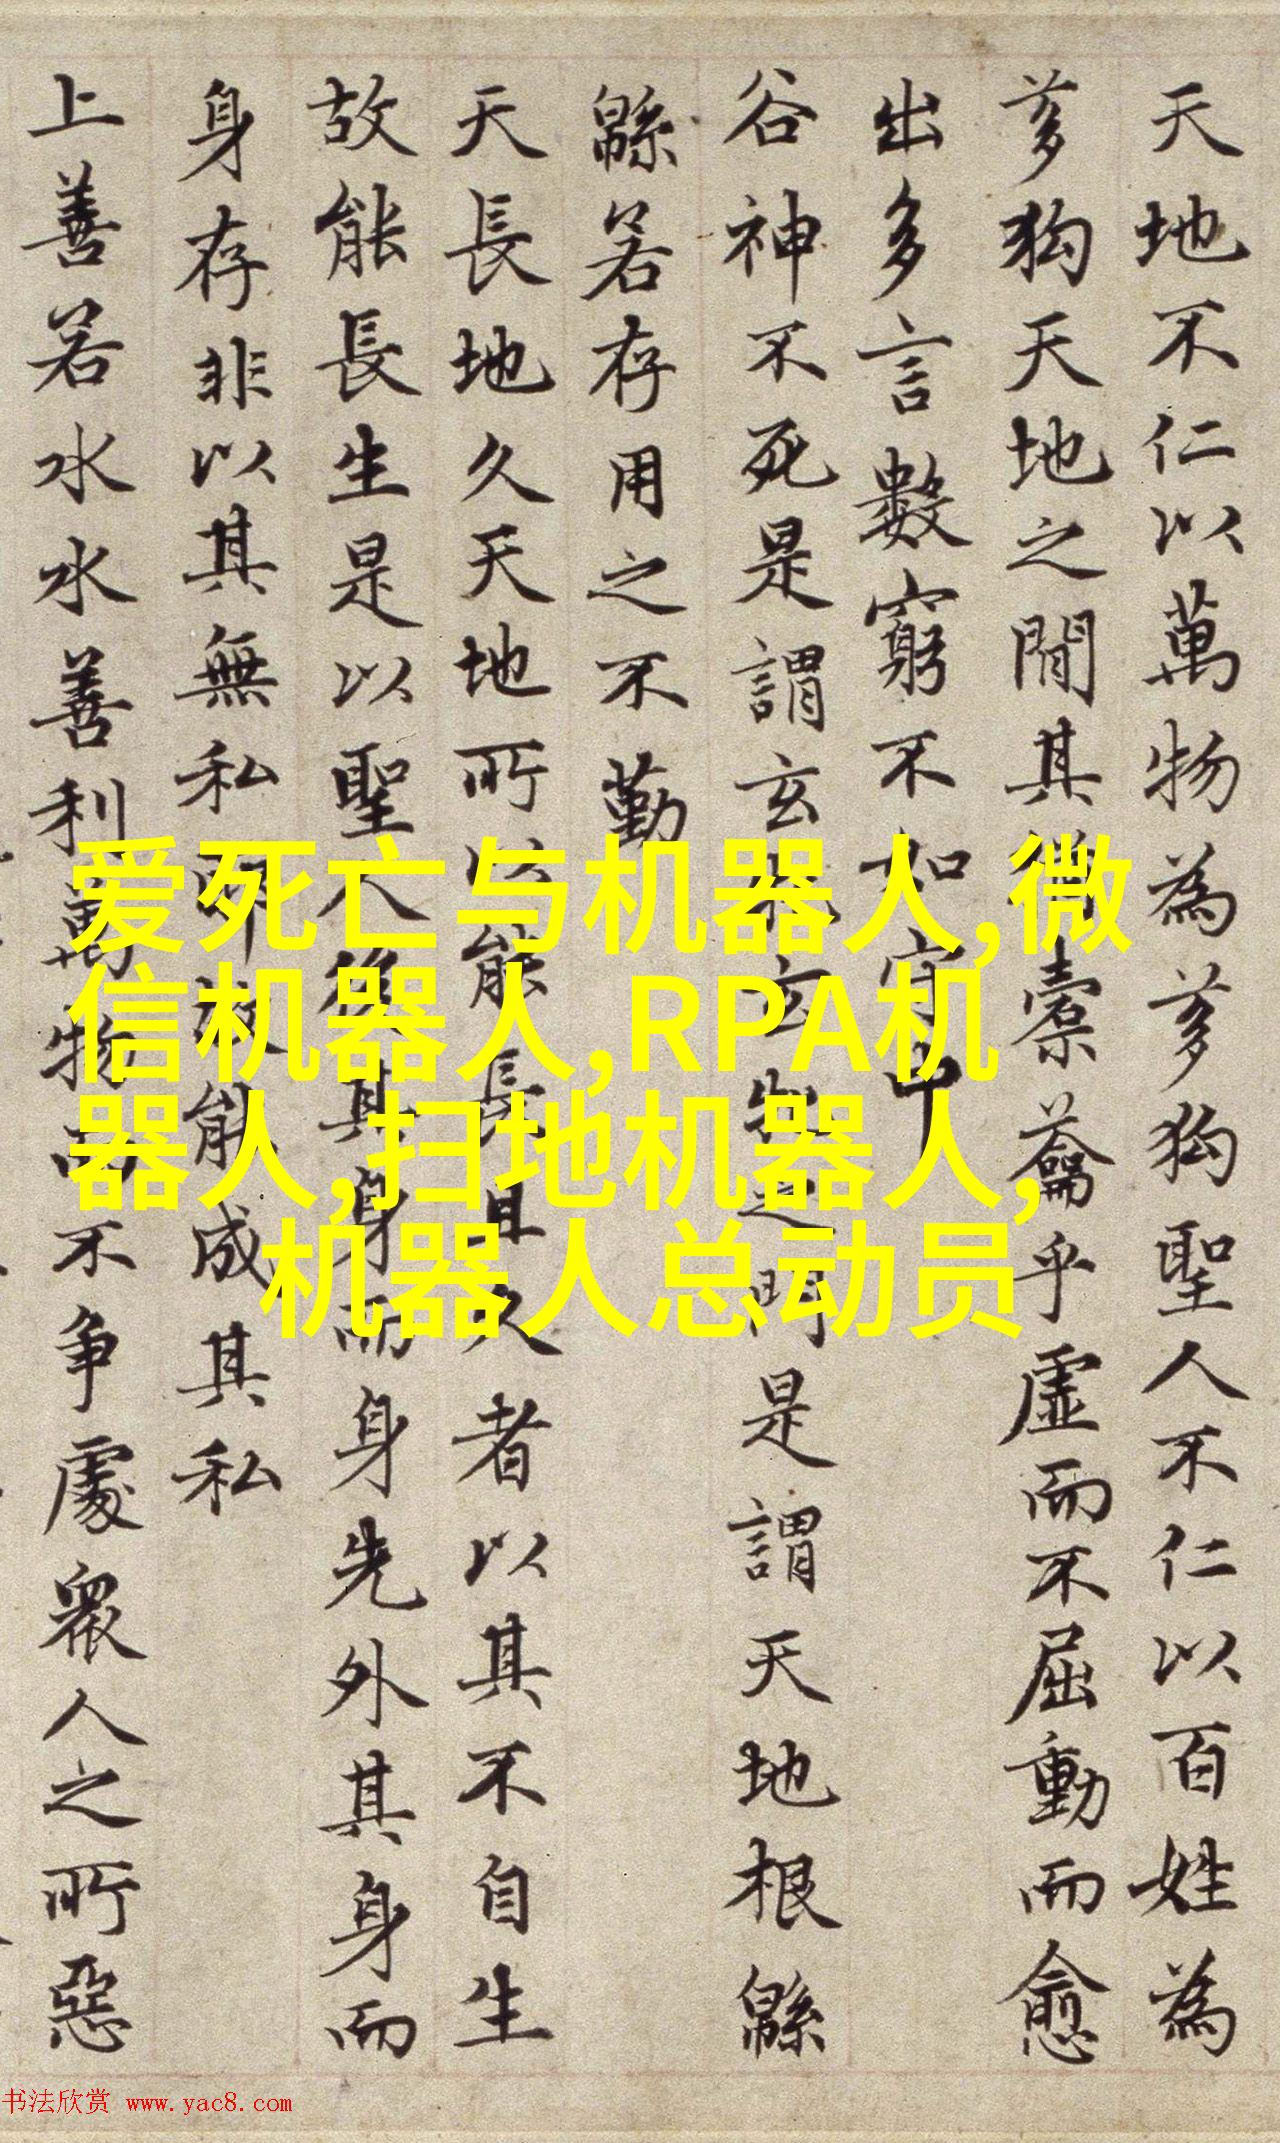 天地不仁以萬物為芻狗聖人不仁以百姓為
芻狗天地之間其猶橐籥乎虛而不屈動而愈
出多言數窮不如守中
谷神不死是謂玄牝玄牝之門是謂天地根緜
緜若存用之不勤
天長地久天地所以能長且久者以其不自生
故能長生是以聖人後其身而身先外其身而
身存非以其無私耶故能成其私
上善若水水善利萬物而不争處衆人之所惡
爱死亡与机器人,微
信机器人,RPA机
器人,扫地机器人,
机器人总动员
书法欣赏 www.yac8.com